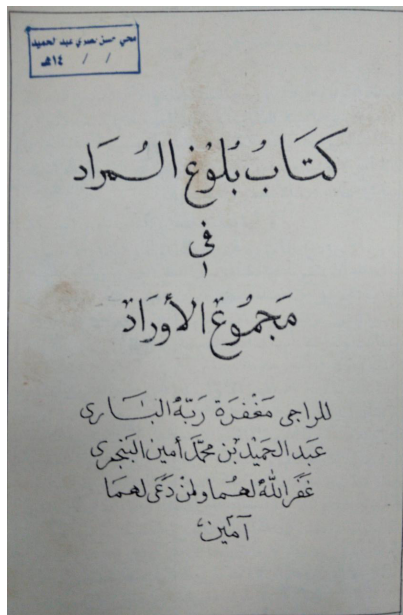 محي حسن نصري عبد الحميد
/ / ١٤هـ
كتَابُ بُلُوْغ المُرَاد
في
مَجمُوع الأَورَاد
للراجى مَغْفِرَة رَبّهِ البَارى
عَبد الحَميْد بْن محمَّد أمين البَنجَرى
غَفَر اللهُ لهُما ولمَنْ دَعَى لهمَا
آمين